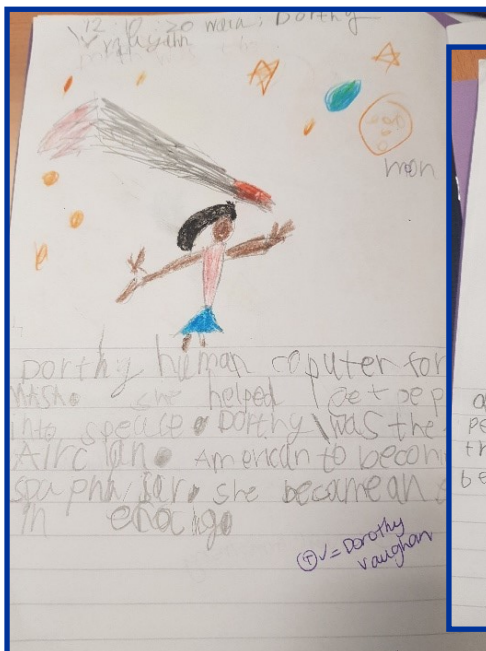 12 . 12 . 20 wala ; Dorthy
mon
Dorthy human coputer for
NASA. she helped get pep
into speace. Dorthy was the
Airc ian. American to becom
spa pha isar. she became an s
in
T V = Dorothy
Vaughan
a
pe
th
be